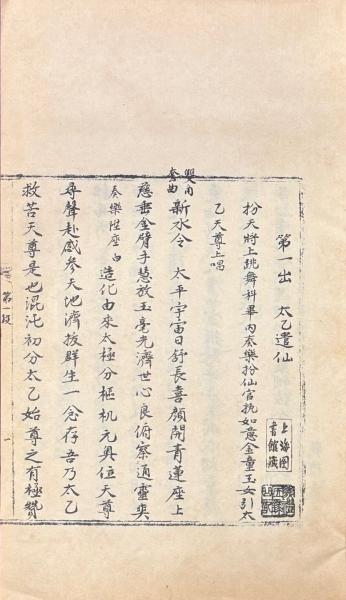 第一出　太乙遣仙
扮天将上跳舞科畢内奏樂扮仙官执如意金童玉女引太
乙天尊上唱
雙角
套曲
新水令　太平宇宙日舒長喜顔開青蓮座上
慈垂金臂手慧放玉毫光濟世心良俯察通靈奕
奏樂陞座白　造化由来太極分樞机元具位天尊
尋聲赴感參天地濟拔群生一念存吾乃太乙
救苦天尊是也混沌初分太乙始尊之有極贊
第一段
一
上海图
書館藏